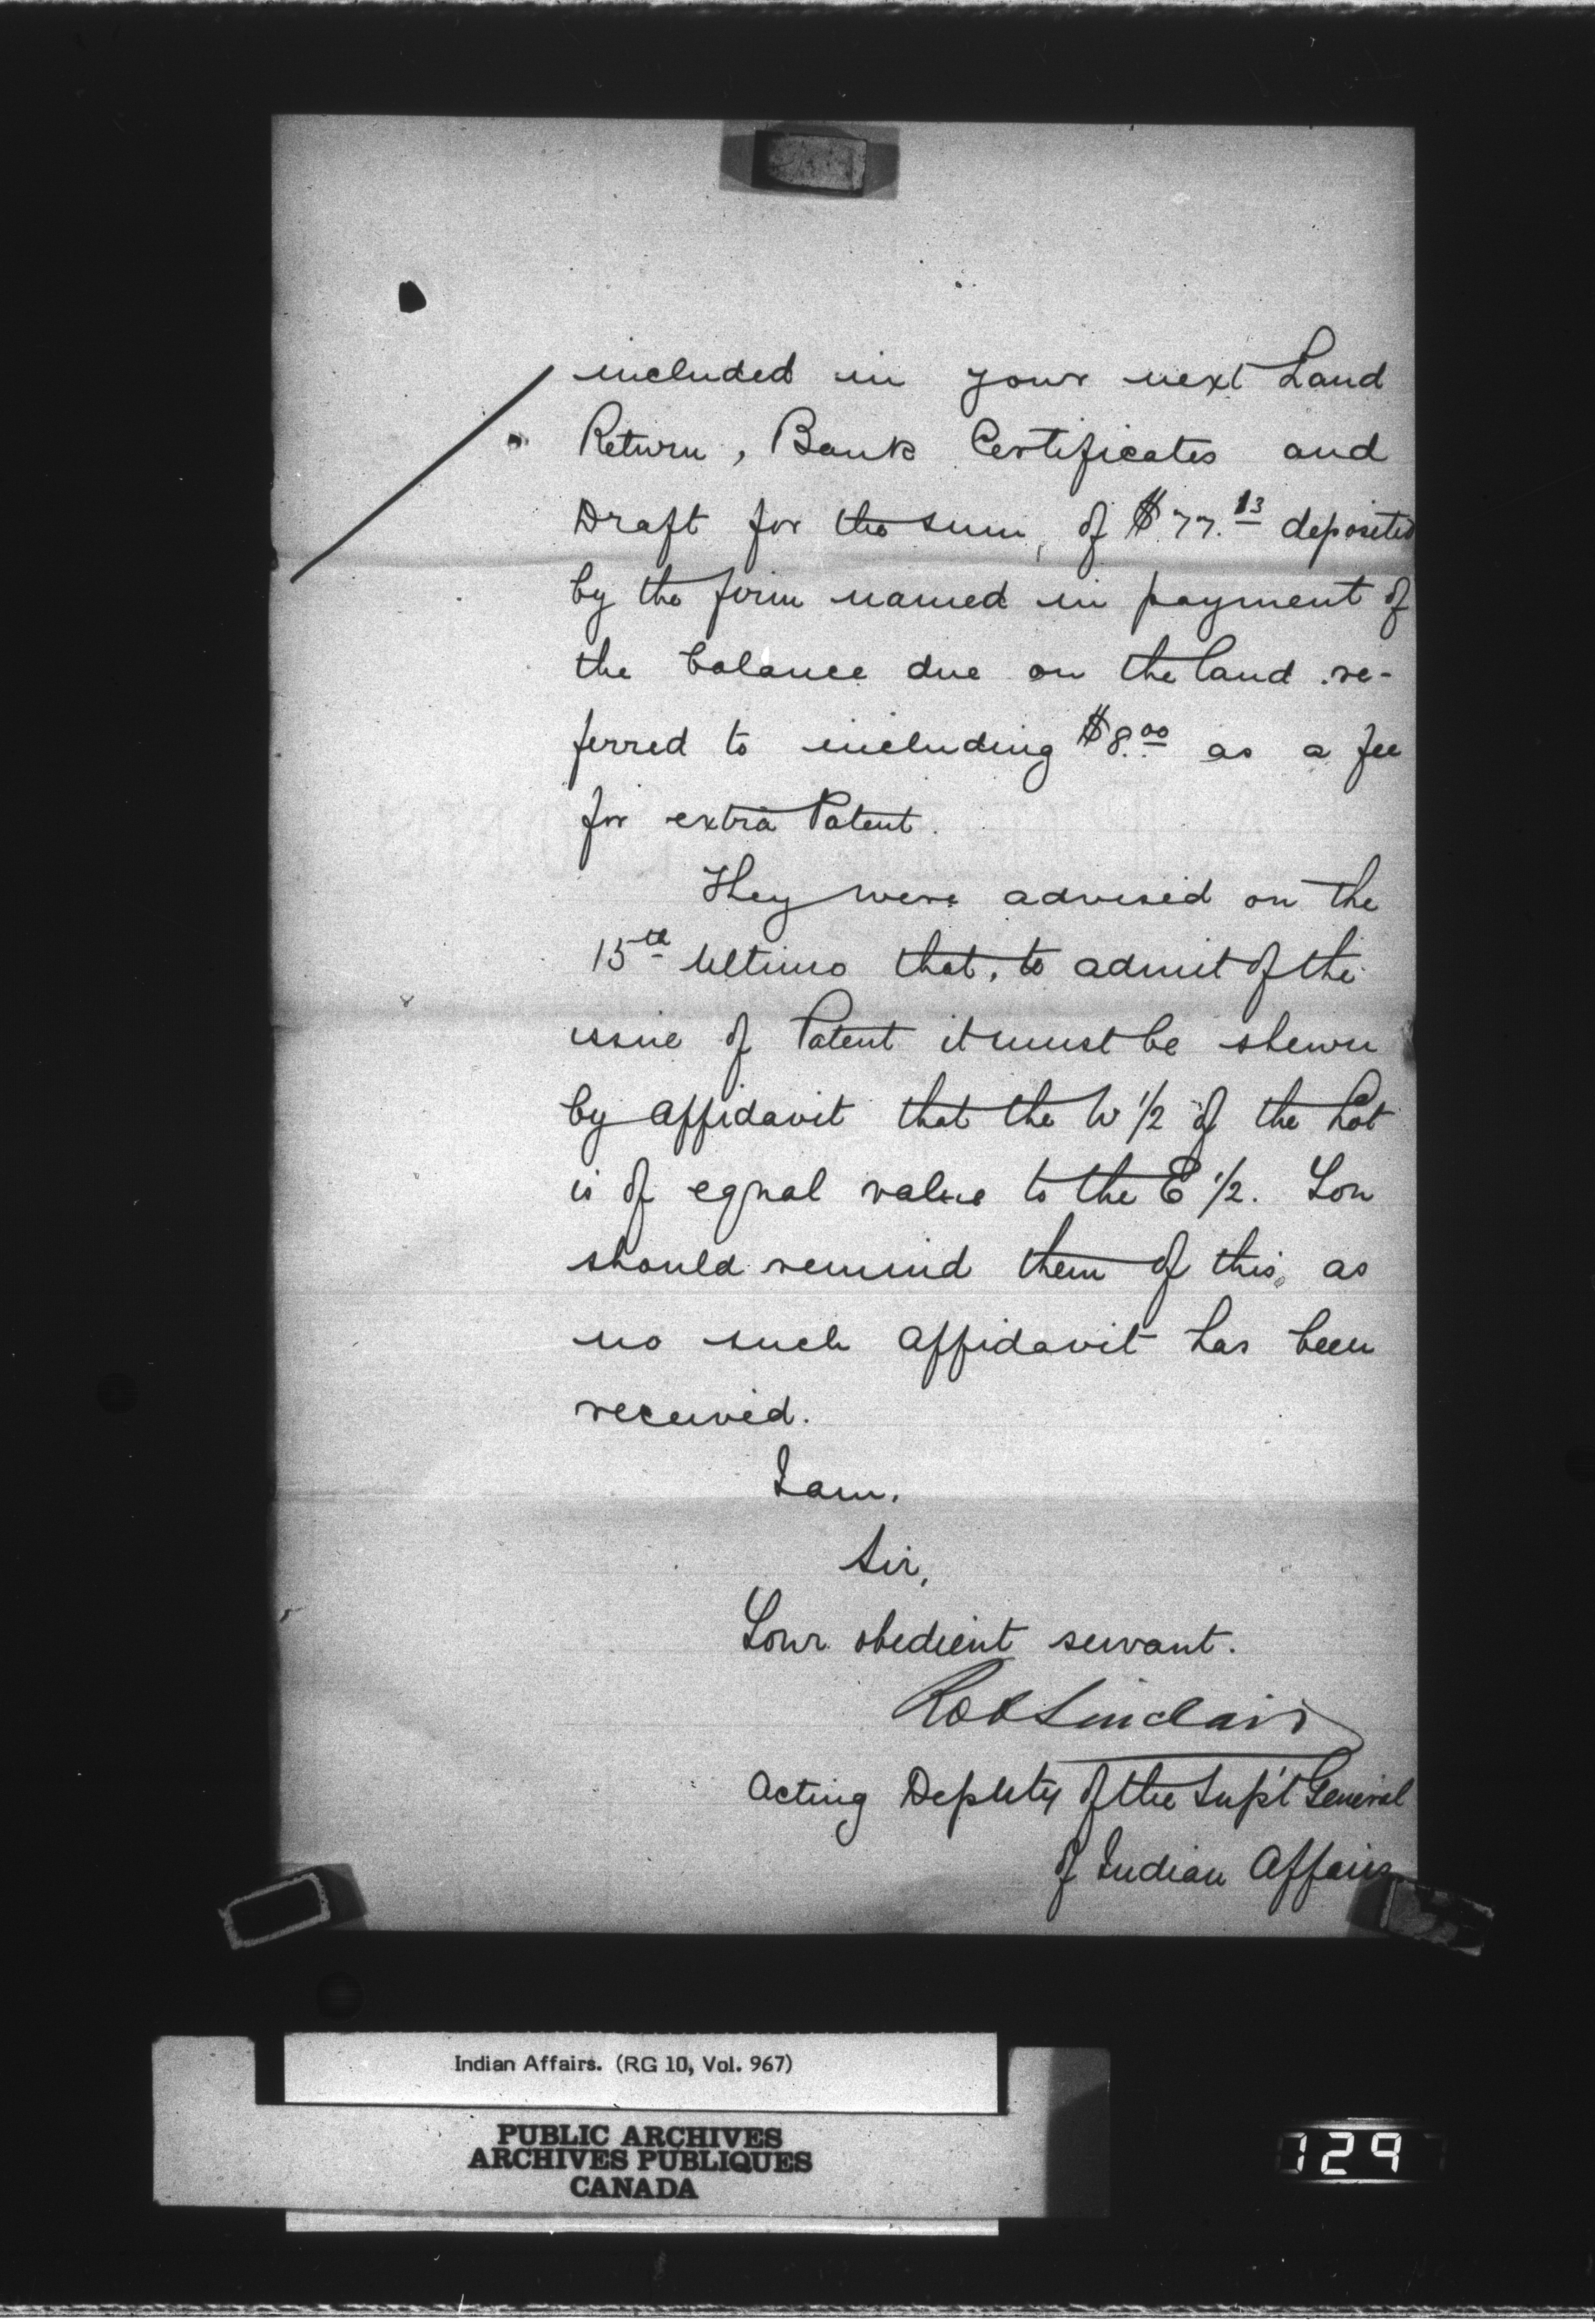 included in your next Land
Return, Bank Certificates and
Draft for the sum, of $77.13 deposited
by the firm named in payment of
the balance due on the land re-
ferred to including $8.00 as a fee
for extra Patent.
They were advised on the
15th Ultimo that, to admit of the
issue of Patent it must be shewn
by affidavit that the W 1/2 of the Lot
is of equal value to the E 1/2. You
should remind them of this, as
no such affidavit has been
received.
I am,
Sir,
Your obedient servant.
Rob Sinclair
Acting Deputy of the Sup't General
of Indian Affairs
Indian Affairs. (RG 10, Vol. 967)
PUBLIC ARCHIVES
ARCHIVES PUBLIQUES
CANADA
129